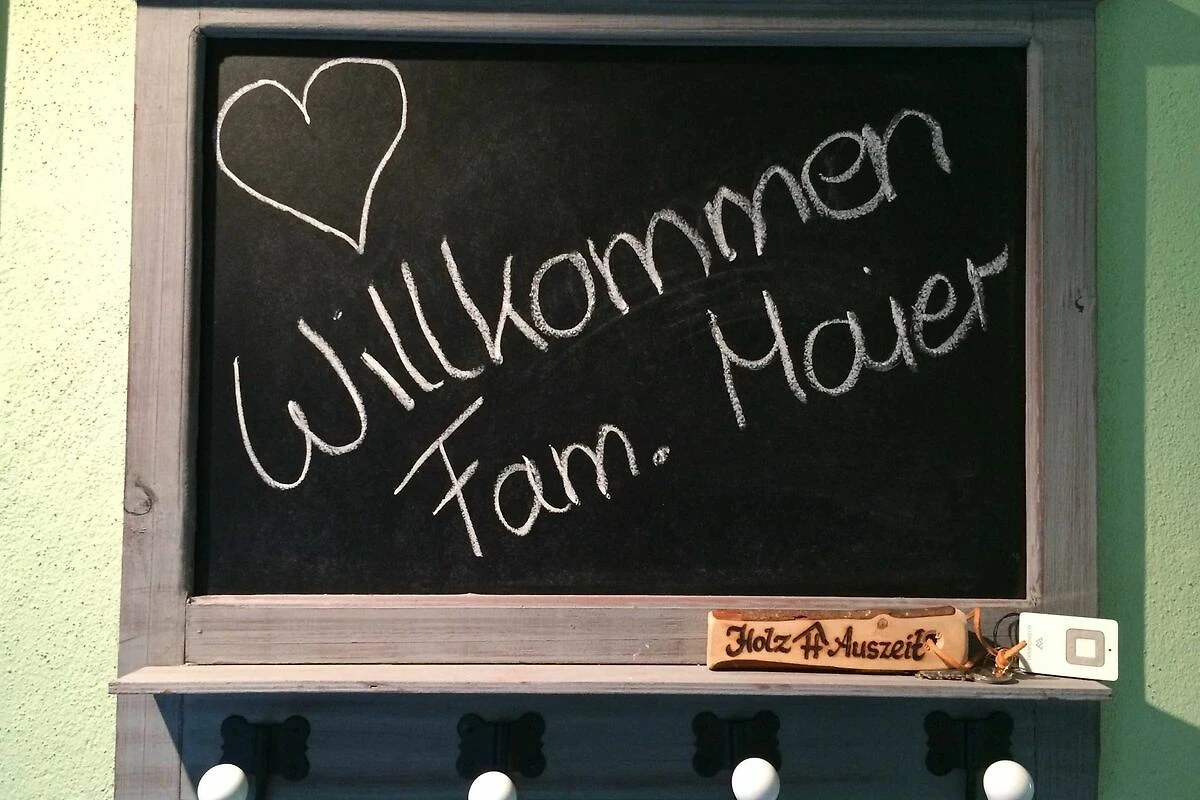 Willkommen
Fam. Maier
Holz Auszeit